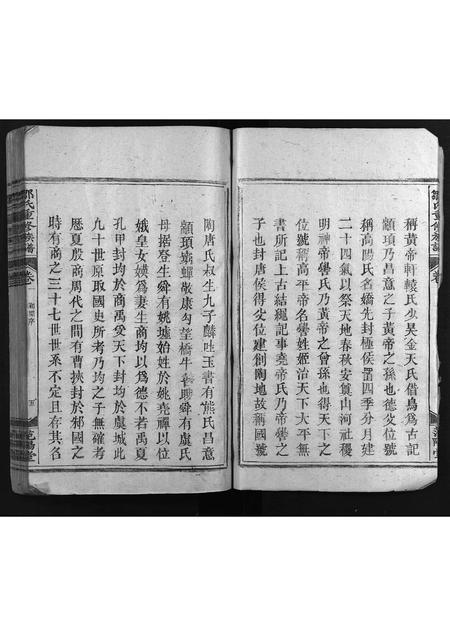 稱黃帝軒轅氏少昊金天氏借鳥爲古記
顓頊乃昌意之子黃帝之孫也德交位號
稱高陽氏名嬌先封極侯罶四季分月建
二十四氣以祭天地春秋安箕山河社稷
明神帝嚳氏乃黃帝之曾孫也得天下之
位號稱高平帝名嚳姓姬治天下太平無
書所記上古結繩記事堯帝氏乃帝嚳之
子也封唐侯得交位建創陶地故稱國號
陶唐氏叔生九子麟吐玉書有熊氏昌意
顓頊窮蟬敬康勾望橋牛瞽瞍舜有虞氏
母握登生舜有姚墟始姓於姚堯禪以位
娥皇女嫇爲妻生商均以爲德不若禹夏
孔甲封均於商禹受天下封均於虞城此
九十世原取國史所考乃均之子無確考
歷夏殷商周代之間有曹挾封於邾國之
時有商之三十七世世系不定且存其名
鄒氏重修族譜
卷一
五
范陽堂